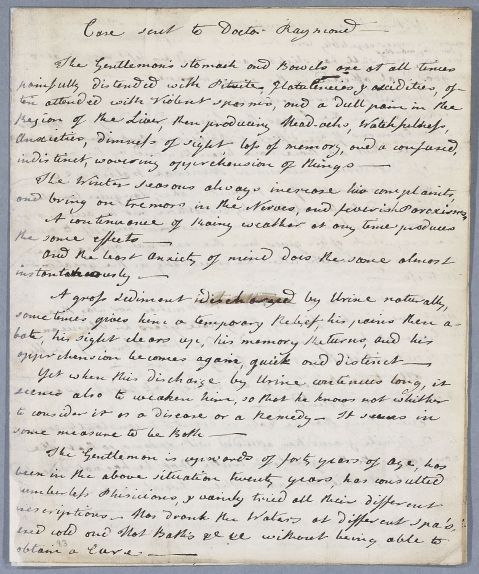 Case sent to Doctor Raymond —
The Gentleman's stomach and Bowels are at all times
painfully distended with Pituite, flatulencies & accidities, of-
ten attended with Violent spasms, and a dull pain in the
Region of the Liver, then producing Head-achs, Watchfulness,
Anxieties, dimness of sight loss of memory, and a confused,
indistinct, wavering apprehension of things —
The Winter seasons always increase his complaints,
and bring on tremors in the Nerves, and feverish Paroxisms,
A continuance of Rainy weather at any time produces
the same effects —
And the least Anxiety of mind does the same almost
instantaneously —
A gross sediment discharged by Urine naturally,
sometimes gives him a temporary Relief, his pains then a-
bate, his sight clears up, his memory Returns, and his
apprehension becomes again, quick and distinct —
Yet when this discharge by Urine continues long, it
seems also to weaken him, so that he knows not whether
to consider it as a disease or a Remedy — It seems in
some measure to be Both —
The Gentleman is upwards of forty years of age, has
been in the above situation twenty years, has consulted
numberless Phisicians, & vainly tried all their different
prescriptions — Has drank the Waters at different spa's,
used cold and Hot Baths &c &c without being able to
obtain a Cure —
93